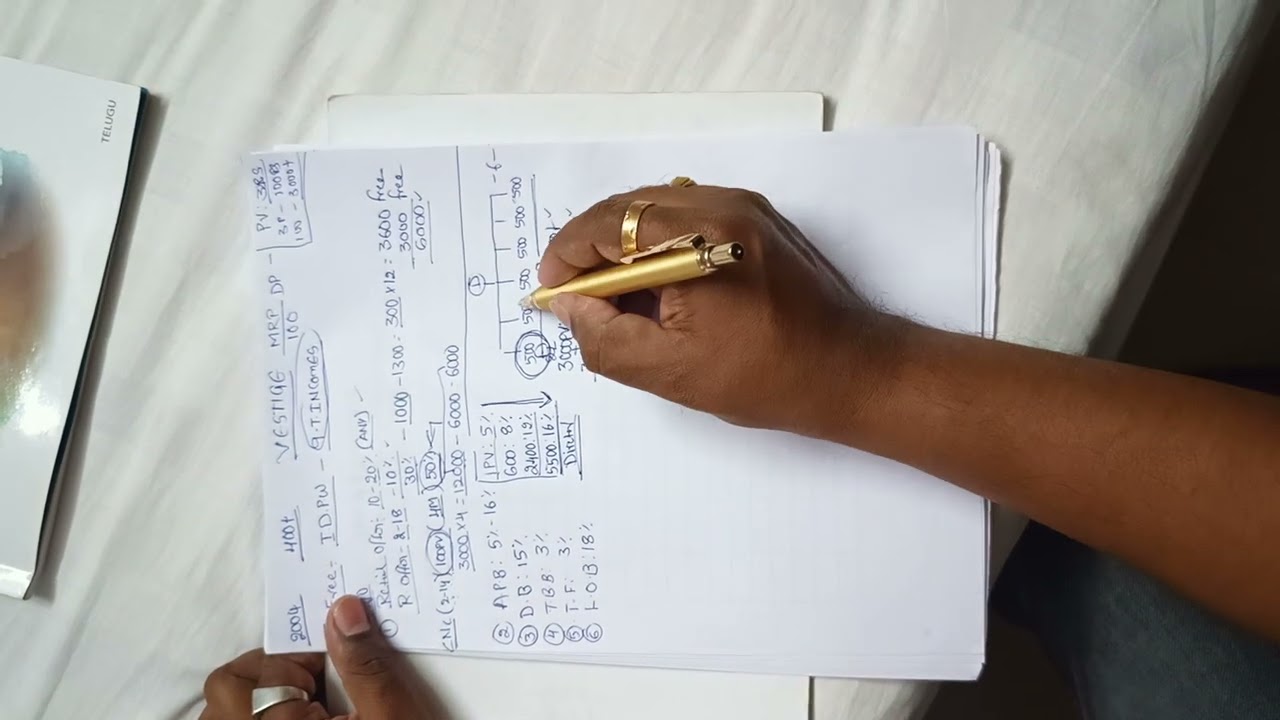 TELUGU
2004 400+ VESTIGE MRP DP -
100
PV: 385
3P - 100RS
100 - 3000+
Free - I D.PW - 9.TINCOMES
① Retail Offer: 10-20% (ANV)
R Offer - 2-18 - 10% - 1000 - 1300 = 300 x 12 = 3600 free
30% 3000 free
6000
CNC (2-14) (100PV) (4M) (50%)
3000 x 4 = 12000 - 6000 - 6000
② APB: 5% - 16%
③ D.B: 15%
④ TBB: 3%
⑤ T.F: 3%
⑥ H.O.B: 18%
1PV: 5%
600: 8%
2400: 12%
5500: 16%
- 6 -
500 500 500 500 500
3000PV